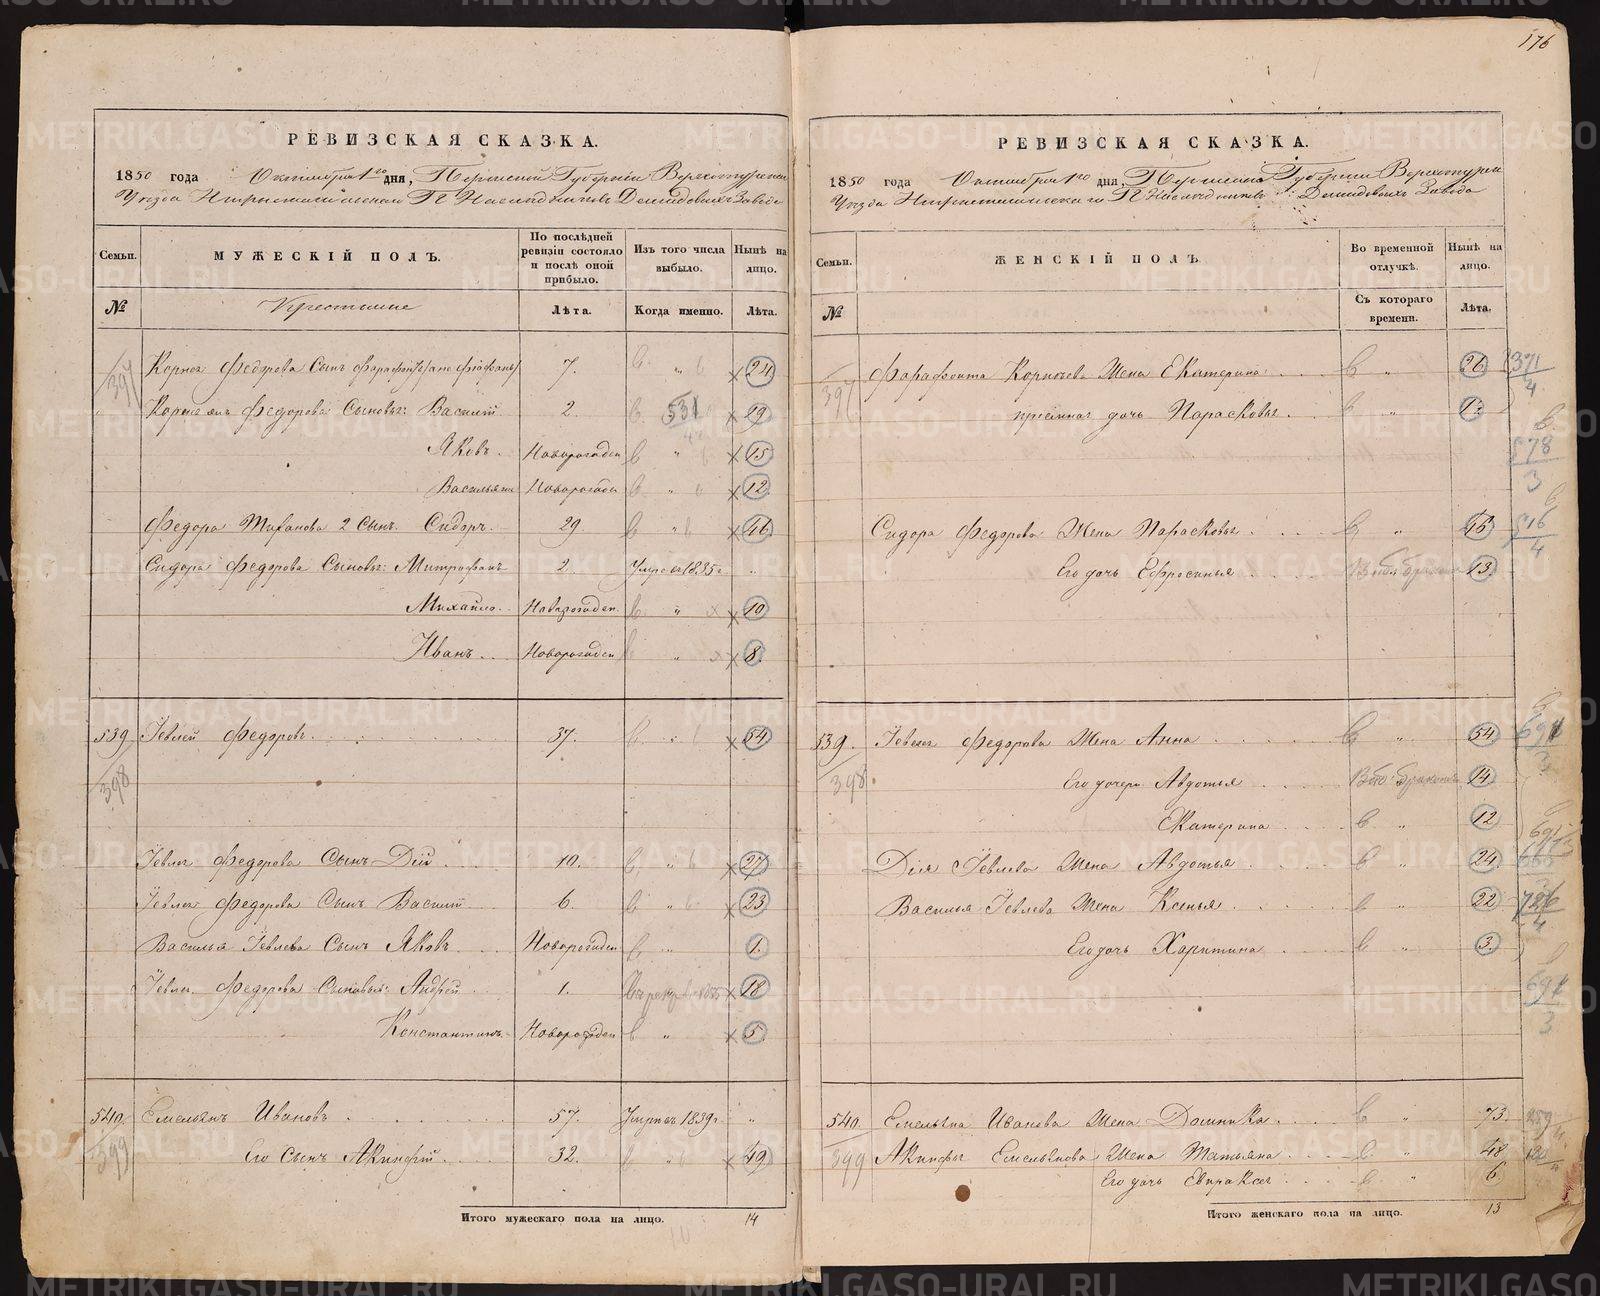 176
РЕВИЗСКАЯ СКАЗКА.
1850 года Октября 1го дня, Пермской Губернии Верхотурскаго
Уѣзда Нижнетагильскаго Гг Наслѣдниковъ Демидовыхъ Завода
Семьи. МУЖЕСКІЙ ПОЛЪ. По послѣдней ревизіи состояло и послѣ оной прибыло. Изъ того числа выбыло. Нынѣ на лицо.
№ Крестьяне Лѣта. Когда именно. Лѣта.
397 Корнея Федорова Сынъ 7. " 24
Корнея Федорова Сыновья: Василій 2. " 29
531
Яковъ. Новорожден " 15
Васильянъ Новорожден " 12
Федора 2 Сынъ Сидоръ. 29 " 46
Сидора Федорова Сыновья: Митрофанъ 2. Умре въ 1835 г "
Михайло. Новорожден. " 10
Иванъ Новорожден " 8.
539 Іевлей Федоровъ 37. " 54
398
Іевлея Федорова Сынъ Дій 10. " 27
Іевлея Федорова Сынъ Василій 6. " 23
Василья Іевлева Сынъ Яковъ Новорожден " 1.
Іевлея Федорова Сыновья: Андрей 1. 18
Константинъ. Новорожден " 5
540. Емельянъ Ивановъ 57. Умре въ 1839 г "
399 Его Сынъ Акинфій 32. 49
Итого мужескаго пола на лицо. 14
РЕВИЗСКАЯ СКАЗКА.
1850 года Октября 1го дня, Пермской Губернии Верхотурскаго
Уѣзда Нижнетагильскаго Гг Наслѣдниковъ Демидовыхъ Завода
Семьи. ЖЕНСКІЙ ПОЛЪ. Во временной отлучкѣ. Нынѣ на лицо.
№ Съ котораго времени. Лѣта.
397 Фарафонта Корнеева Жена Екатерина " 26 371/4
пріемная дочь Парасковья " 13
578/3
Сидора Федорова Жена Парасковья " 45 516/4
Его дочь Ефросинья 13
539. Іевлея Федорова Жена Анна " 54 691/3
398 Его дочери Авдотья 14
Екатерина " 12
Дія Іевлева Жена Авдотья " 24
Василья Іевлева Жена Ксенья " 22
Его дочь Харитина " 3.
540. Емельяна Иванова Жена Домника " 73.
399 Акинфья Емельянова Жена Татьяна " 48
Его дочь Евпраксея " 6
Итого женскаго пола на лицо. 13
METRIKI.GASO-URAL.RU